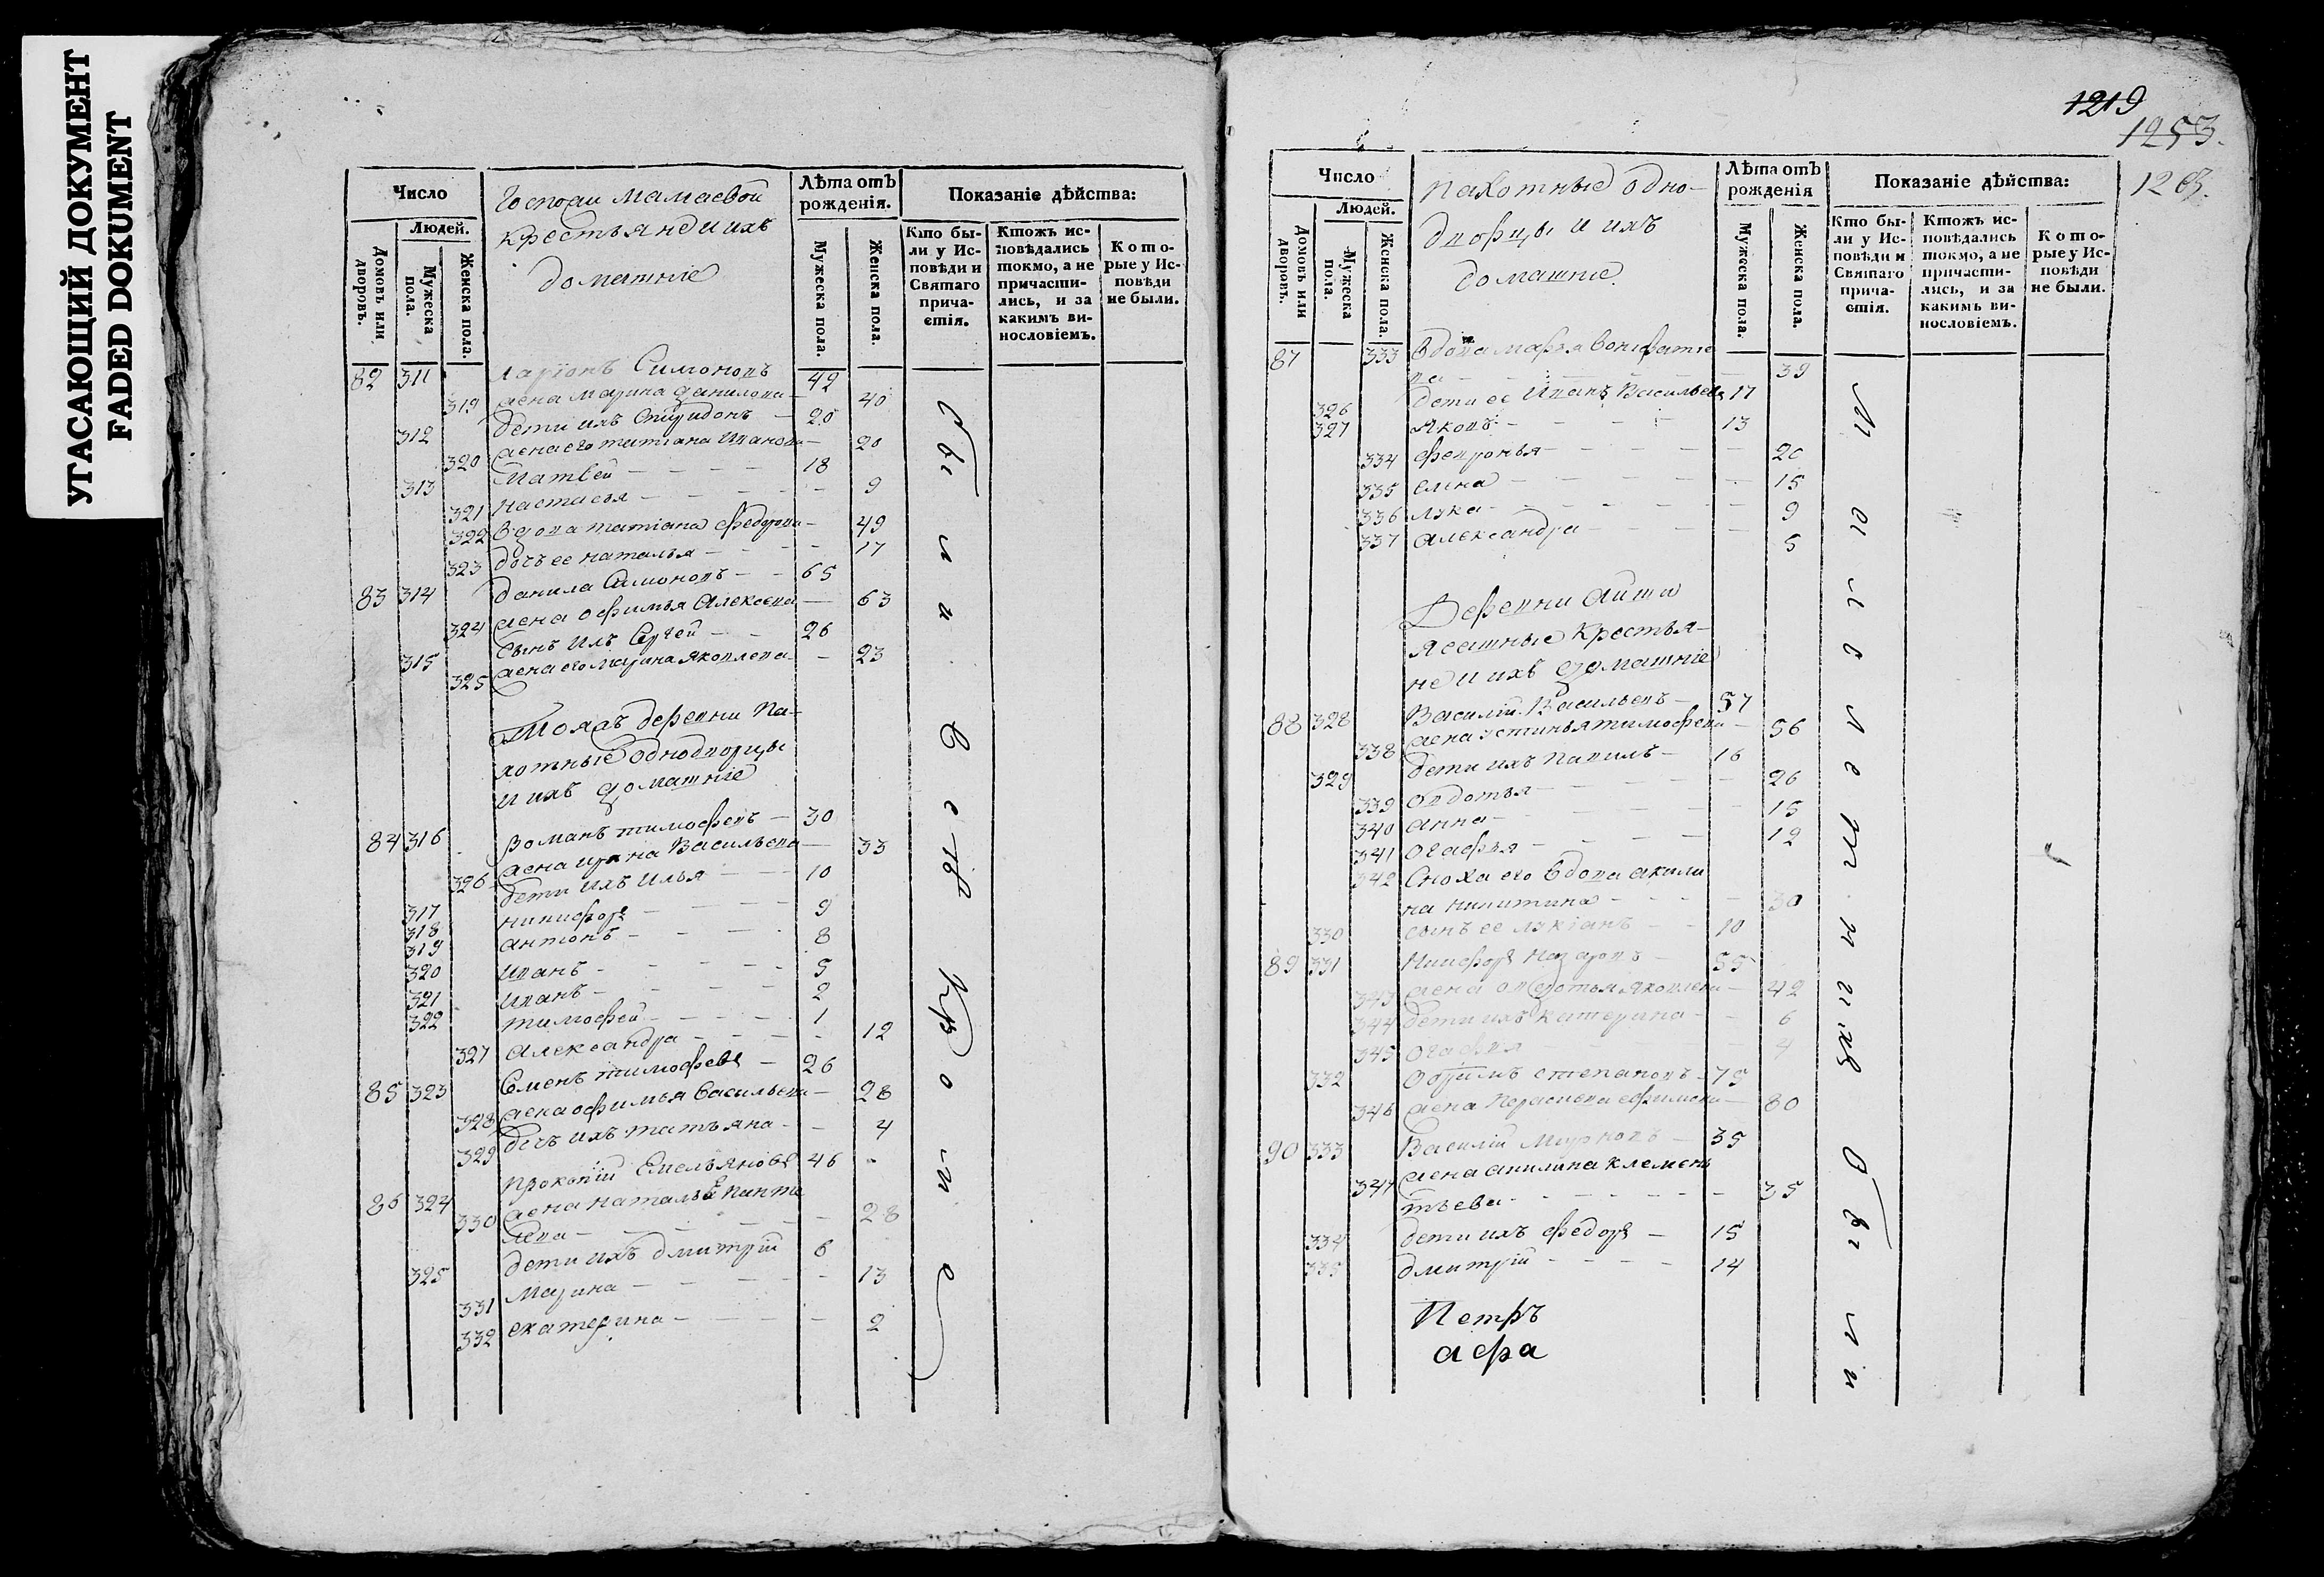 УГАСАЮЩИЙ ДОКУМЕНТ
FADED DOKUMENT
Число
Людей.
Домовъ или дворовъ.
Мужеска пола.
Женска пола.
Господи Мамаевой
крестьяне и ихъ
домашніе
Лѣта отъ рожденія.
Мужеска пола.
Женска пола.
Показаніе дѣйства:
Кто были у Исповѣди и Святаго причастія.
Ктожъ исповѣдались токмо, а не причастились, и за какимъ винословіемъ.
Которые у Исповѣди не были.
82 311 Ларіонъ Симоновъ 42
319 жена Марина Данилова — 40
312 дети ихъ Спиридонъ — 20
320 жена его татіана Иванова — 20
313 Матвей — 18
321 Настасья — 9
322 Вдова татіана Федорова — 49
323 дочь ее наталья — 17
83 314 данила Симоновъ — 65
324 жена офимья Алексеева — 63
315 Сынъ ихъ Сергей — 26
325 жена его Марина Яковлева — 23
Тояжъ деревни Па-
хотные однодворцы
и ихъ домашніе
84 316 Романъ тимофеевъ — 30
326 жена ирина Васильева — 33
317 дети ихъ илья — 10
318 никифоръ — 9
319 антонъ — 8
320 иванъ — 5
321 иванъ — 2
322 тимофей — 1
327 александра — 12
85 323 Семенъ тимофеевъ — 26
328 жена офимья Васильева — 28
329 дочь ихъ татьяна — 4
86 324 прокопій Емельяновъ 46
330 жена наталья панте
лева — 28
325 дети ихъ дмитрій 6
331 Марина — 13
332 екатерина — 2
1219
1253.
1263.
Число
Людей.
Домовъ или дворовъ.
Мужеска пола.
Женска пола.
пахотные одно-
дворцы и ихъ
домашніе.
Лѣта отъ рожденія
Мужеска пола.
Женска пола.
Показаніе дѣйства:
Кто были у Исповѣди и Святаго причастія.
Ктожъ исповѣдались токмо, а не причастились, и за какимъ винословіемъ.
Которые у Исповѣди не были.
87 333 Вдова марья Вонифатіе
ва — 39
326 дети ее Иванъ Васильевъ 17
327 Яковъ — 13
334 февронья — 20
335 елена — 15
336 лука — 9
337 александра — 5
Деревни Айши
ясашные крестья-
не и ихъ домашніе
88 328 Василій Васильевъ — 57
338 жена устинья тимофеева — 56
329 дети ихъ павилъ — 16
339 овдотья — 26
340 анна — 15
341 огафья — 12
342 Сноха его вдова акили
на никитина — 30
330 сынъ ее лукіанъ — 10
89 331 Никифоръ Назаровъ — 55
343 жена овдотья Яковлева — 42
344 дети ихъ катерина — 6
345 огафья — 4
332 степановъ — 75
346 жена ефимова — 80
90 333 Василій — 35
347 жена акилина клемень
тьева — 35
334 дети ихъ федоръ — 15
335 дмитрій — 14
Петръ
афа